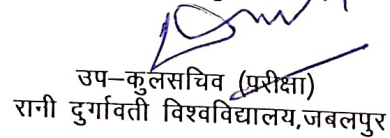 उप–कुलसचिव (परीक्षा)
रानी दुर्गावती विश्वविद्यालय,जबलपुर